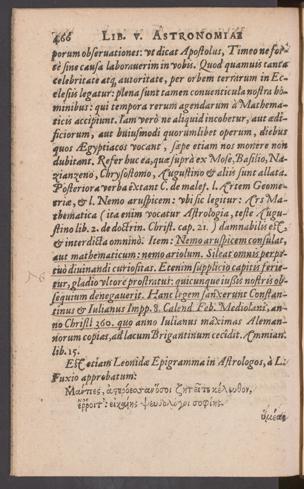 466 LIB. V. ASTRONOMIAE
porum observationes: vt dicat Apostolus, Timeo ne for-
tè sine causa laboraverim in vobis. Quod quamuis tanta
celebritate atq; autoritate, per orbem terrarum in Ec-
clesiis legatur: plena sunt tamen conventicula nostra ho-
minibus: qui tempora rerum agendarum à Mathema-
ticis accipiunt. Iam verò ne aliquid incohetur, aut ædi-
ficiorum, aut huiusmodi quorumlibet operum, diebus
quos Ægyptiacos vocant, sæpe etiam nos monere non
dubitant. Refer huc ea, quæ suprà ex Mose, Basilio, Na-
zianzeno, Chrysostomo, Augustino & aliis sunt allata.
Posteriora verba extant C. de malef. l. Artem Geome-
triæ, & l. Nemo aruspicem: vbi sic legitur: Ars Ma-
thematica (ita enim vocatur Astrologia, teste Augu-
stino lib. 2. de doctrin. Christ. cap. 21.) damnabilis est,
& interdicta omninò: Item: Nemo aruspicem consulat,
aut mathematicum: nemo ariolum. Sileat omnis perpe-
tuò divinandi curiositas. Etenim supplicio capitis ferie-
tur, gladio vltore prostratus: quicunque iussis nostris ob-
sequium denegauerit. Hanc legem sanxerunt Constan-
tinus & Iulianus Impp. 8. Calend. Feb. Mediolani, an-
no Christi 360. quo anno Iulianus maximas Aleman-
norum copias, ad lacum Brigantinum cecidit. Ammian.
lib. 15.
Est etiam Leonidæ Epigramma in Astrologos, à L.
Fuxio approbatum:
Μάντιες,
ἔῤῥοιτ᾽: ψευδολόγοι σοφίης.